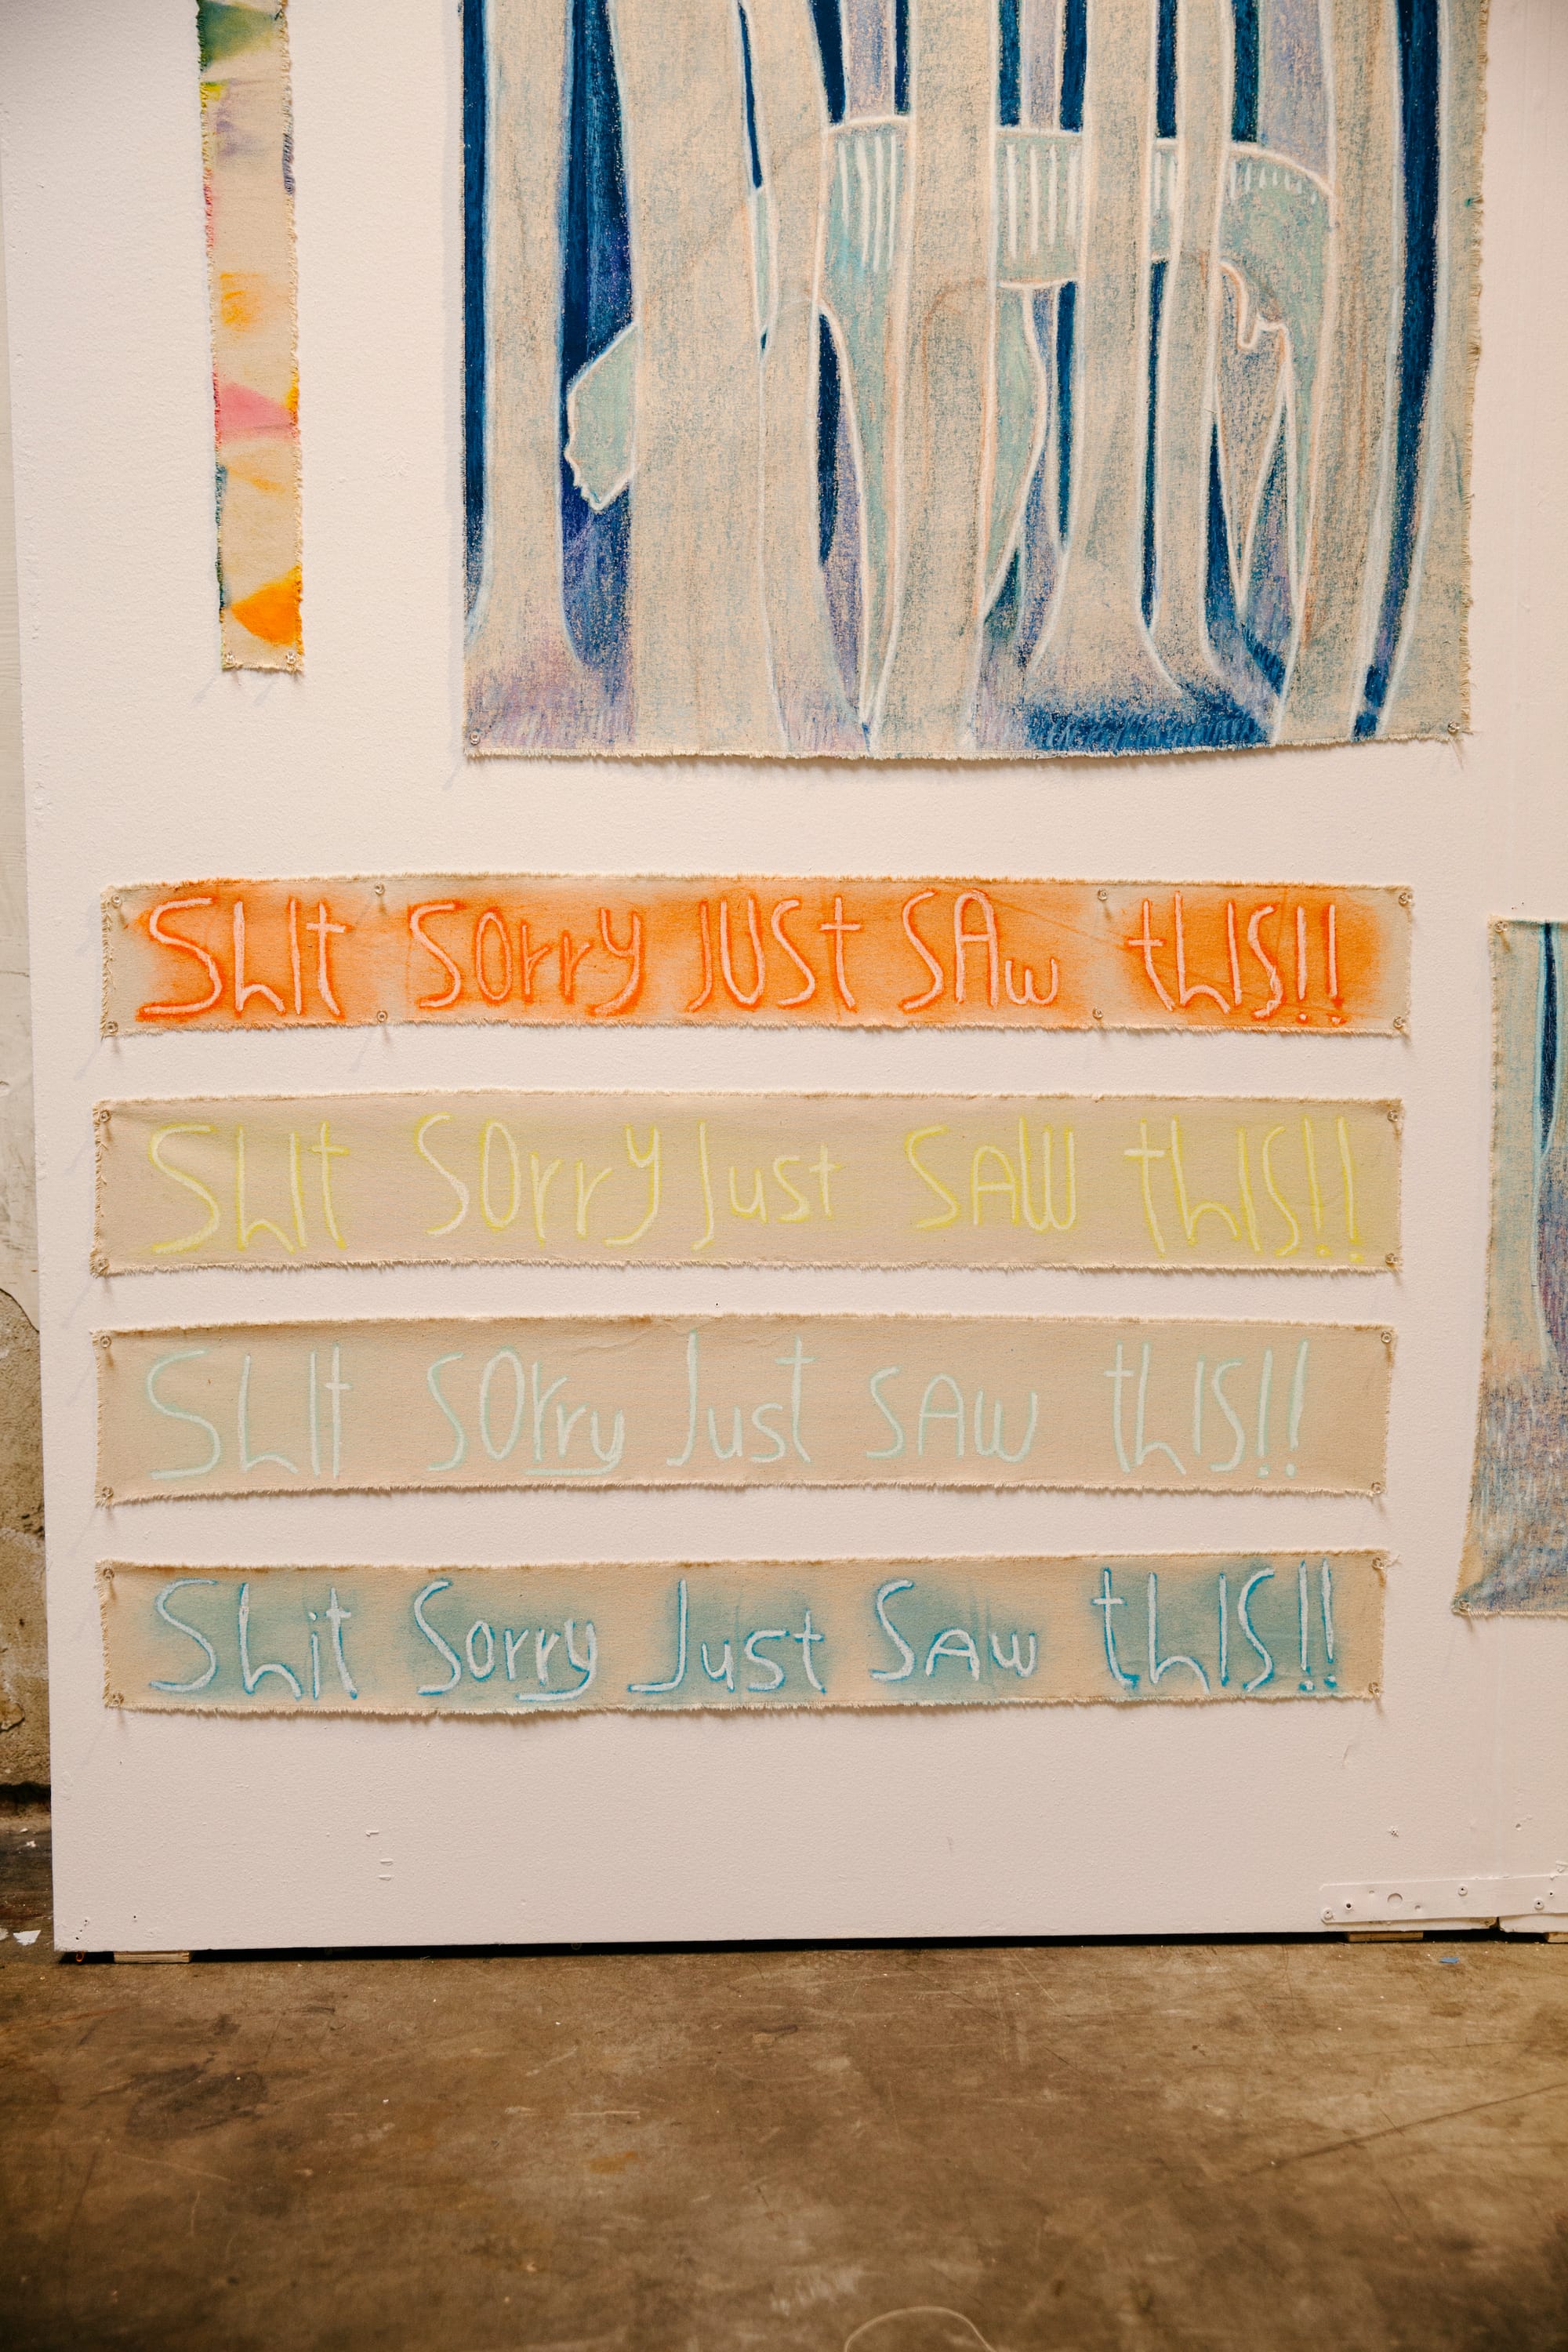 ShIt SOrry JUSt SAw thIS!!
ShIt SOrry Just SAW thIS!!
ShIt SOrry Just SAW thIS!!
Shit Sorry Just SAw thIS!!